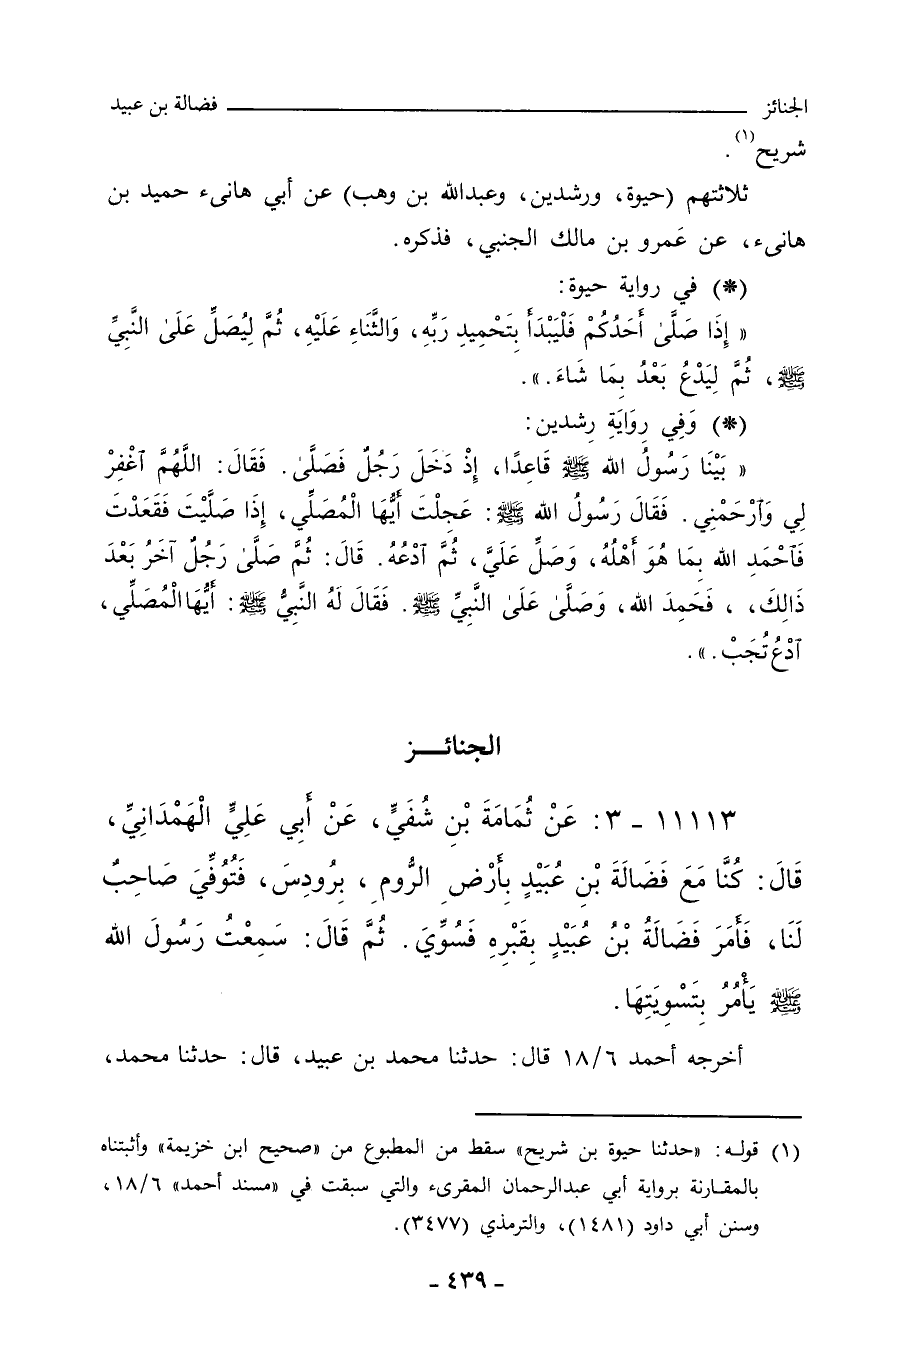 الجنائز ـــــــــــــــــــــــــــــــــــــــ فضالة بن عبيد
شريح(١).
ثلاثتهم (حيوة، ورشدين، وعبدالله بن وهب) عن أبي هانىء حميد بن
هانىء، عن عَمرو بن مالك الجنبي، فذكره.
(*) في رواية حيوة:
« إِذَا صَلَّىٰ أَحَدُكُمْ فَلْيَبْدَأْ بِتَحْمِيدِ رَبِّهِ، وَالثَّنَاءِ عَلَيْهِ، ثُمَّ لِيُصَلِّ عَلَىٰ النَّبِيِّ
ﷺ، ثُمَّ لِيَدْعُ بَعْدُ بِمَا شَاءَ.».
(*) وَفِي رِوَايَةِ رِشدين:
« بَيْنَا رَسُولُ الله ﷺ قَاعِدًا، إِذْ دَخَلَ رَجُلٌ فَصَلَّىٰ. فَقَالَ: اللَّهُمَّ ٱغْفِرْ
لِي وَٱرْحَمْنِي. فَقَالَ رَسُولُ الله ﷺ: عَجِلْتَ أَيُّهَا الْمُصَلِّي، إِذَا صَلَّيْتَ فَقَعَدْتَ
فَٱحْمَدِ الله بِمَا هُوَ أَهْلُهُ، وَصَلِّ عَلَيَّ، ثُمَّ ٱدْعُهُ. قَالَ: ثُمَّ صَلَّىٰ رَجُلٌ آخَرُ بَعْدَ
ذَالِكَ، ، فَحَمِدَ الله، وَصَلَّىٰ عَلَىٰ النَّبِيِّ ﷺ. فَقَالَ لَهُ النَّبِيُّ ﷺ: أَيُّهَا الْمُصَلِّي،
ٱدْعُ تُجَبْ.».
الجنائـــز
١١١١٣ ـ ٣: عَنْ ثُمَامَةَ بْنِ شُفَيٍّ، عَنْ أَبِي عَلِيٍّ الْهَمْدَانِيِّ،
قَالَ: كُنَّا مَعَ فَضَالَةَ بْنِ عُبَيْدٍ بِأَرْضِ الرُّومِ، بِرُودِسَ، فَتُوُفِّيَ صَاحِبٌ
لَنَا، فَأَمَرَ فَضَالَةُ بْنُ عُبَيْدٍ بِقَبْرِهِ فَسُوِّيَ. ثُمَّ قَالَ: سَمِعْتُ رَسُولَ الله
ﷺ يَأْمُرُ بِتَسْوِيَتِهَا.
أخرجه أحمد ١٨/٦ قال: حدثنا محمد بن عبيد، قال: حدثنا محمد،
(١) قوله: «حدثنا حيوة بن شريح» سقط من المطبوع من «صحيح ابن خزيمة» وأثبتناه
بالمقارنة برواية أبي عبدالرحمان المقرىء والتي سبقت في «مسند أحمد» ١٨/٦،
وسنن أبي داود (١٤٨١)، والترمذي (٣٤٧٧).
ـ ٤٣٩ ـ